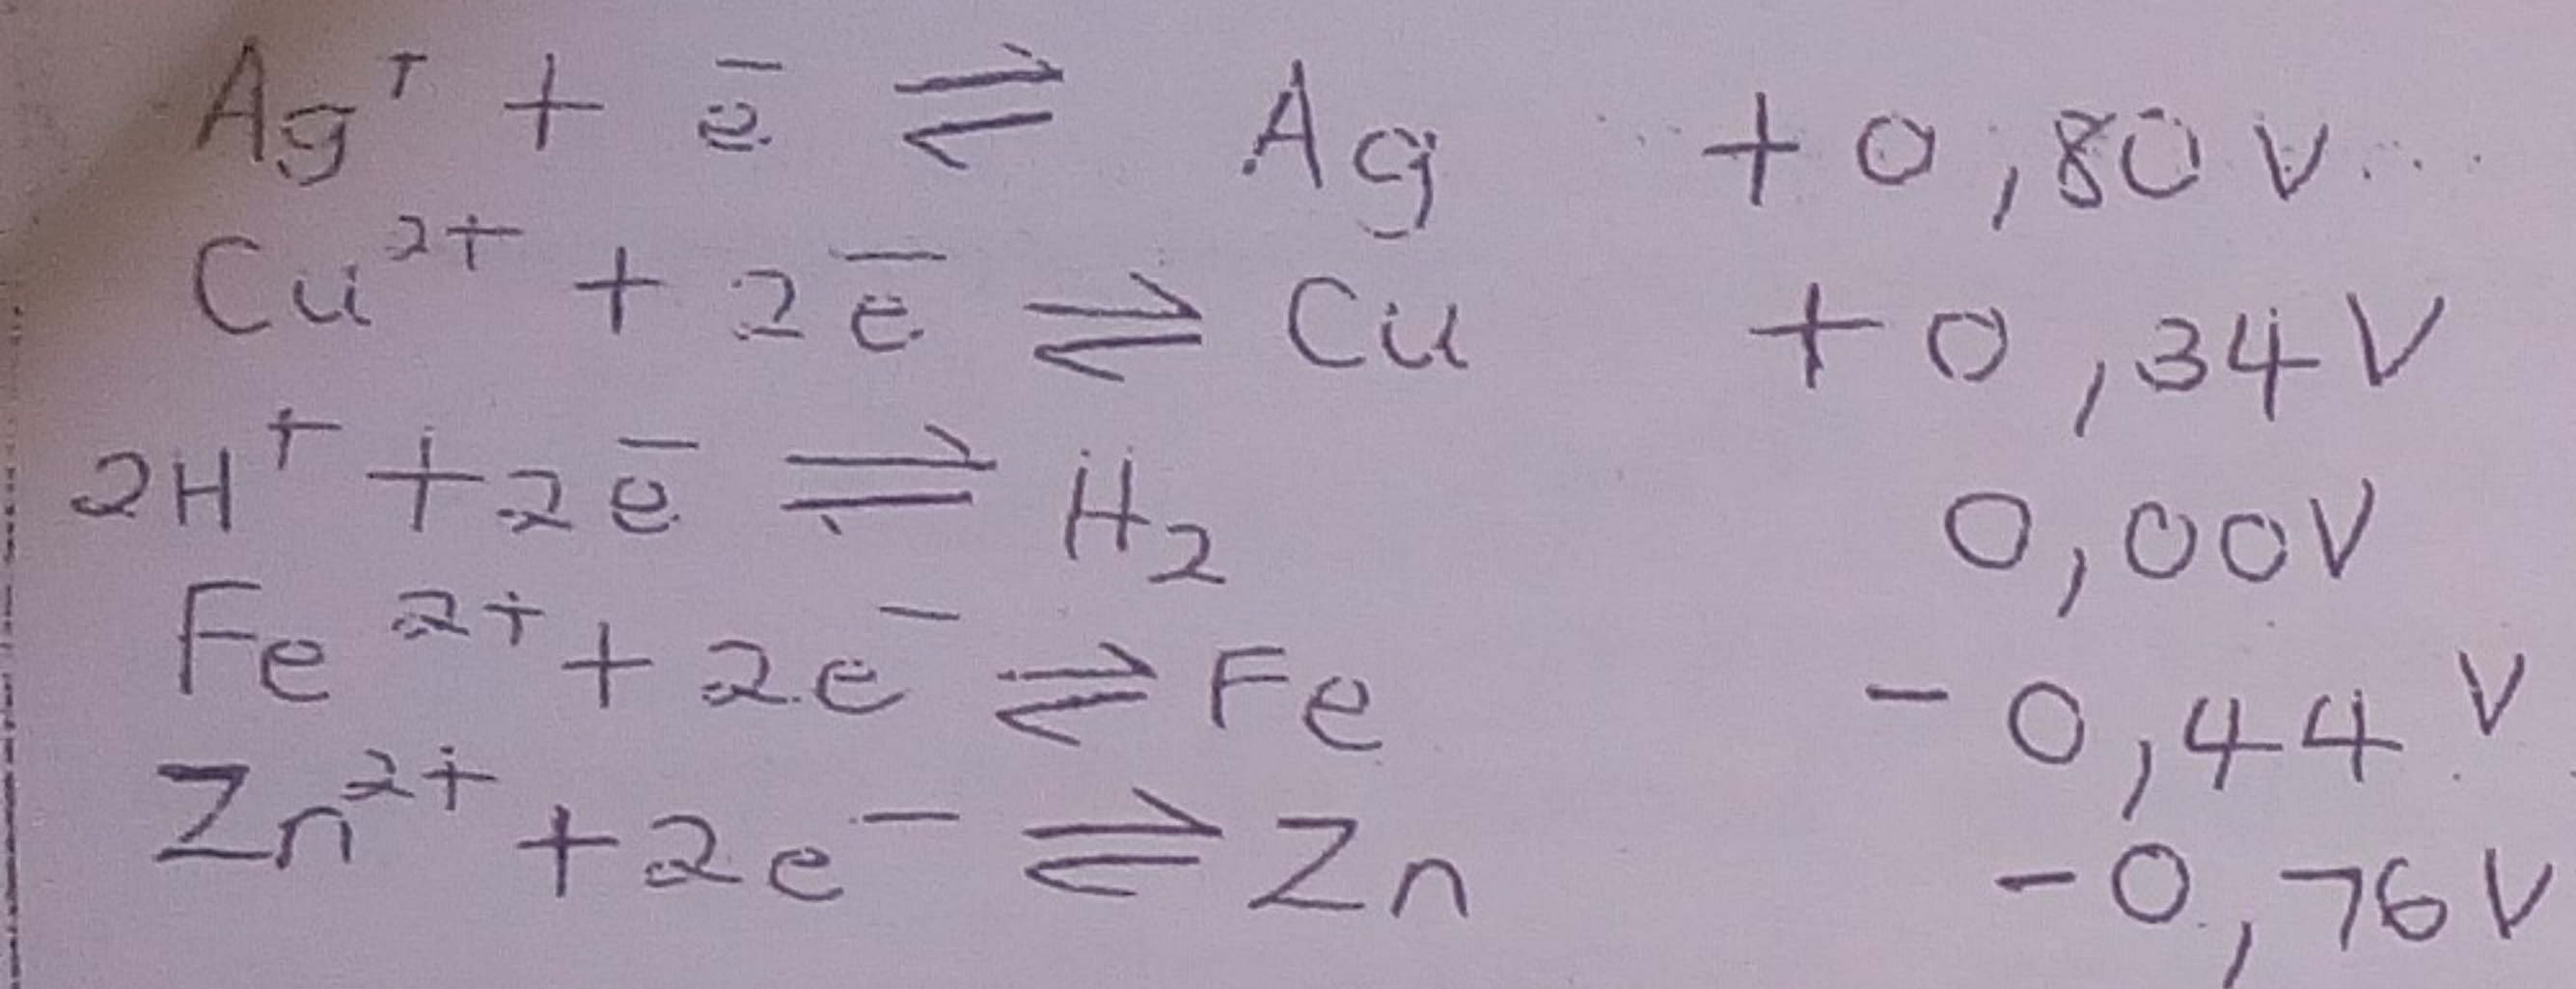 Ag⁺ + e⁻ ⇌ Ag +0,80V
Cu²⁺ + 2e⁻ ⇌ Cu +0,34V
2H⁺ + 2e⁻ ⇌ H₂ 0,00V
Fe²⁺ + 2e⁻ ⇌ Fe -0,44V
Zn²⁺ + 2e⁻ ⇌ Zn -0,76V